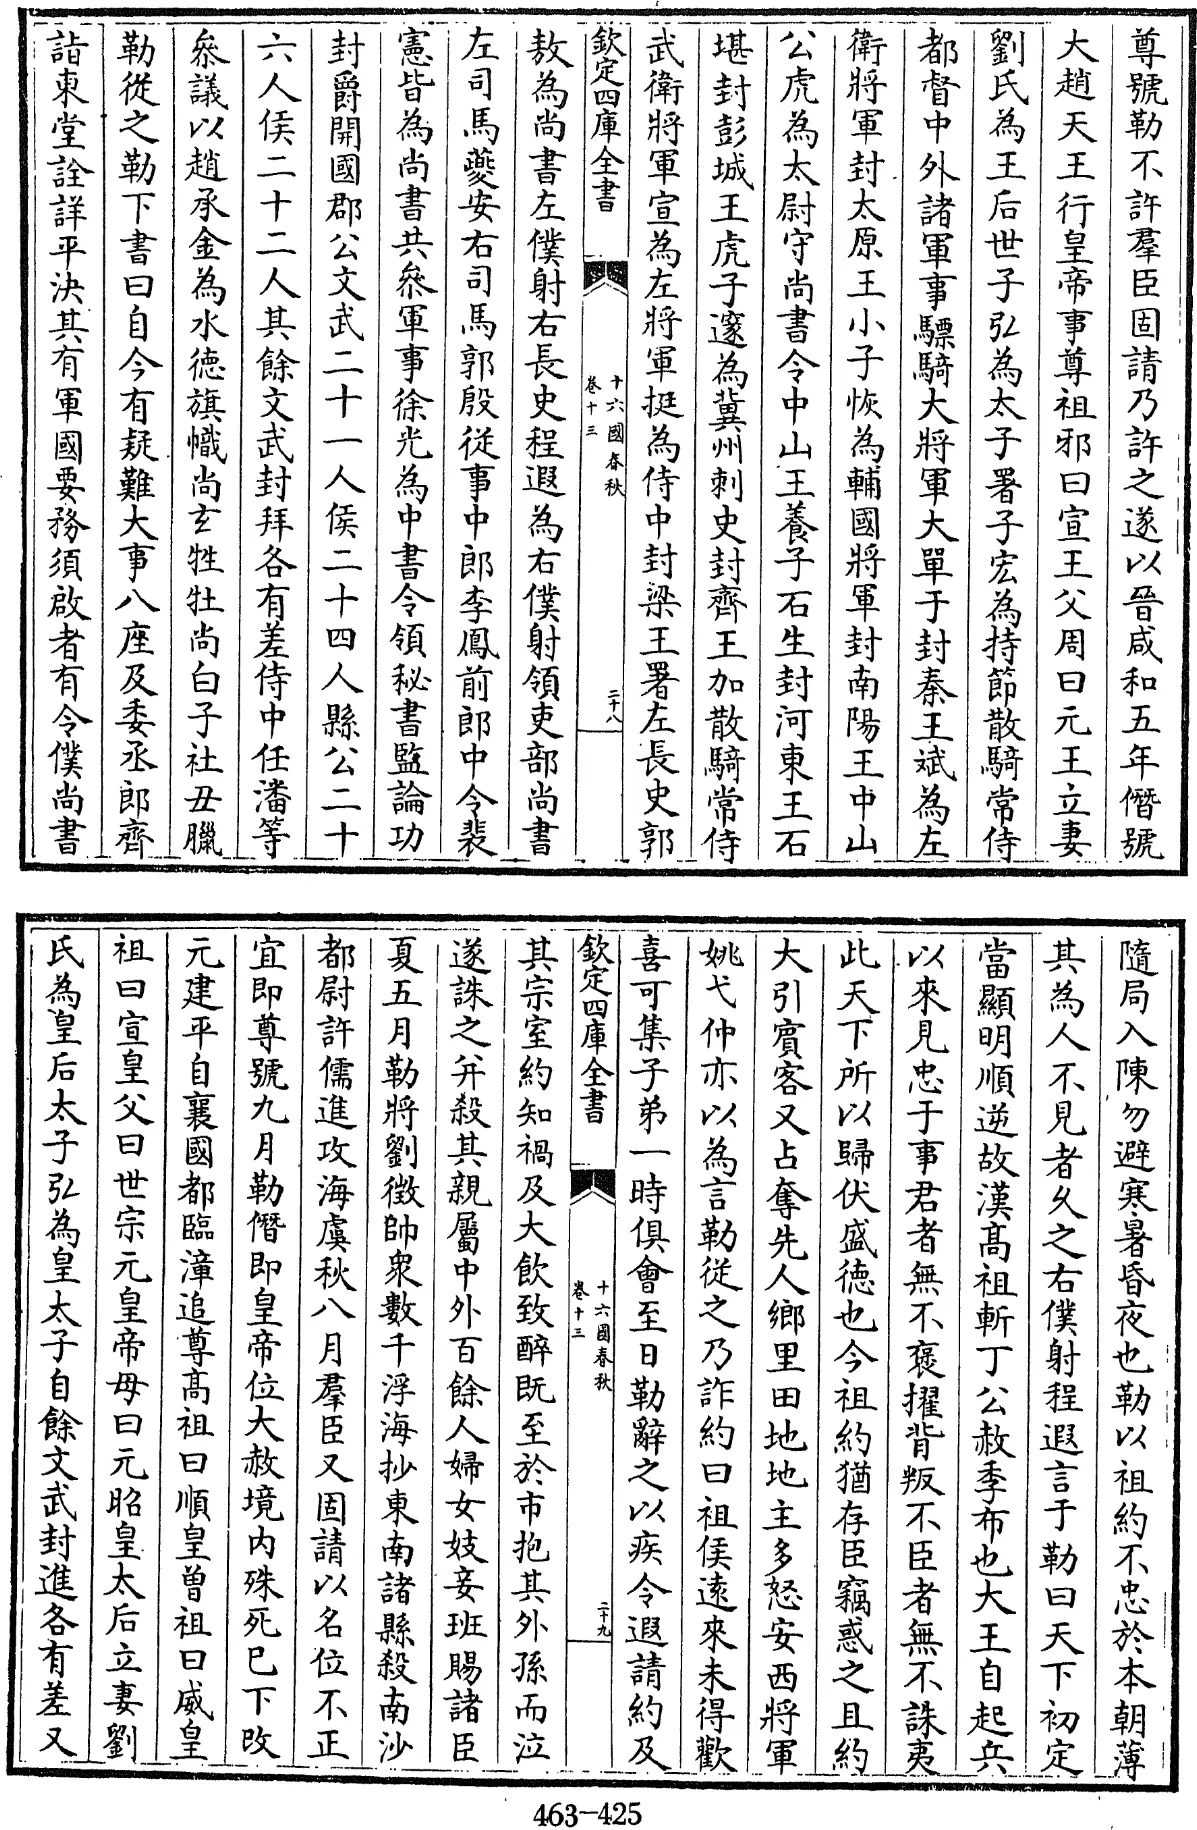 尊號勒不許羣臣固請乃許之遂以晉咸和五年僭號
大趙天王行皇帝事尊祖邪曰宣王父周曰元王立妻
劉氏為王后世子弘為太子署子宏為持節散騎常侍
都督中外諸軍事驃騎大將軍大單于封秦王斌為左
衛將軍封太原王小子恢為輔國將軍封南陽王中山
公虎為太尉守尚書令中山王養子石生封河東王石
堪封彭城王虎子邃為冀州刺史封齊王加散騎常侍
武衛將軍宣為左將軍挺為侍中封梁王署左長史郭
欽定四庫全書
十六國春秋
卷十三
二十八
敖為尚書左僕射右長史程遐為右僕射領吏部尚書
左司馬夔安右司馬郭殷從事中郎李鳳前郎中令裴
憲皆為尚書共叅軍事徐光為中書令領秘書監論功
封爵開國郡公文武二十一人侯二十四人縣公二十
六人侯二十二人其餘文武封拜各有差侍中任潘等
叅議以趙承金為水德旗幟尚玄牲牡尚白子社丑臘
勒從之勒下書曰自今有疑難大事八座及委丞郎齊
詣東堂詮詳平決其有軍國要務須啟者有令僕尚書
隨局入陳勿避寒暑昏夜也勒以祖約不忠於本朝薄
其為人不見者久之右僕射程遐言于勒曰天下初定
當顯明順逆故漢髙祖斬丁公赦季布也大王自起兵
以來見忠于事君者無不褒擢背叛不臣者無不誅夷
此天下所以歸伏盛德也今祖約猶存臣竊惑之且約
大引賓客又占奪先人鄉里田地地主多怒安西將軍
姚弋仲亦以為言勒從之乃詐約曰祖侯遠來未得歡
喜可集子弟一時俱會至日勒辭之以疾令遐請約及
欽定四庫全書
十六國春秋
卷十三
二十九
其宗室約知禍及大飲致醉既至於市抱其外孫而泣
遂誅之并殺其親屬中外百餘人婦女妓妾班賜諸臣
夏五月勒將劉徴帥衆數千浮海抄東南諸縣殺南沙
都尉許儒進攻海虞秋八月羣臣又固請以名位不正
宜即尊號九月勒僭即皇帝位大赦境内殊死巳下改
元建平自襄國都臨漳追尊髙祖曰順皇曾祖曰威皇
祖曰宣皇父曰世宗元皇帝母曰元昭皇太后立妻劉
氏為皇后太子弘為皇太子自餘文武封進各有差又
463-425